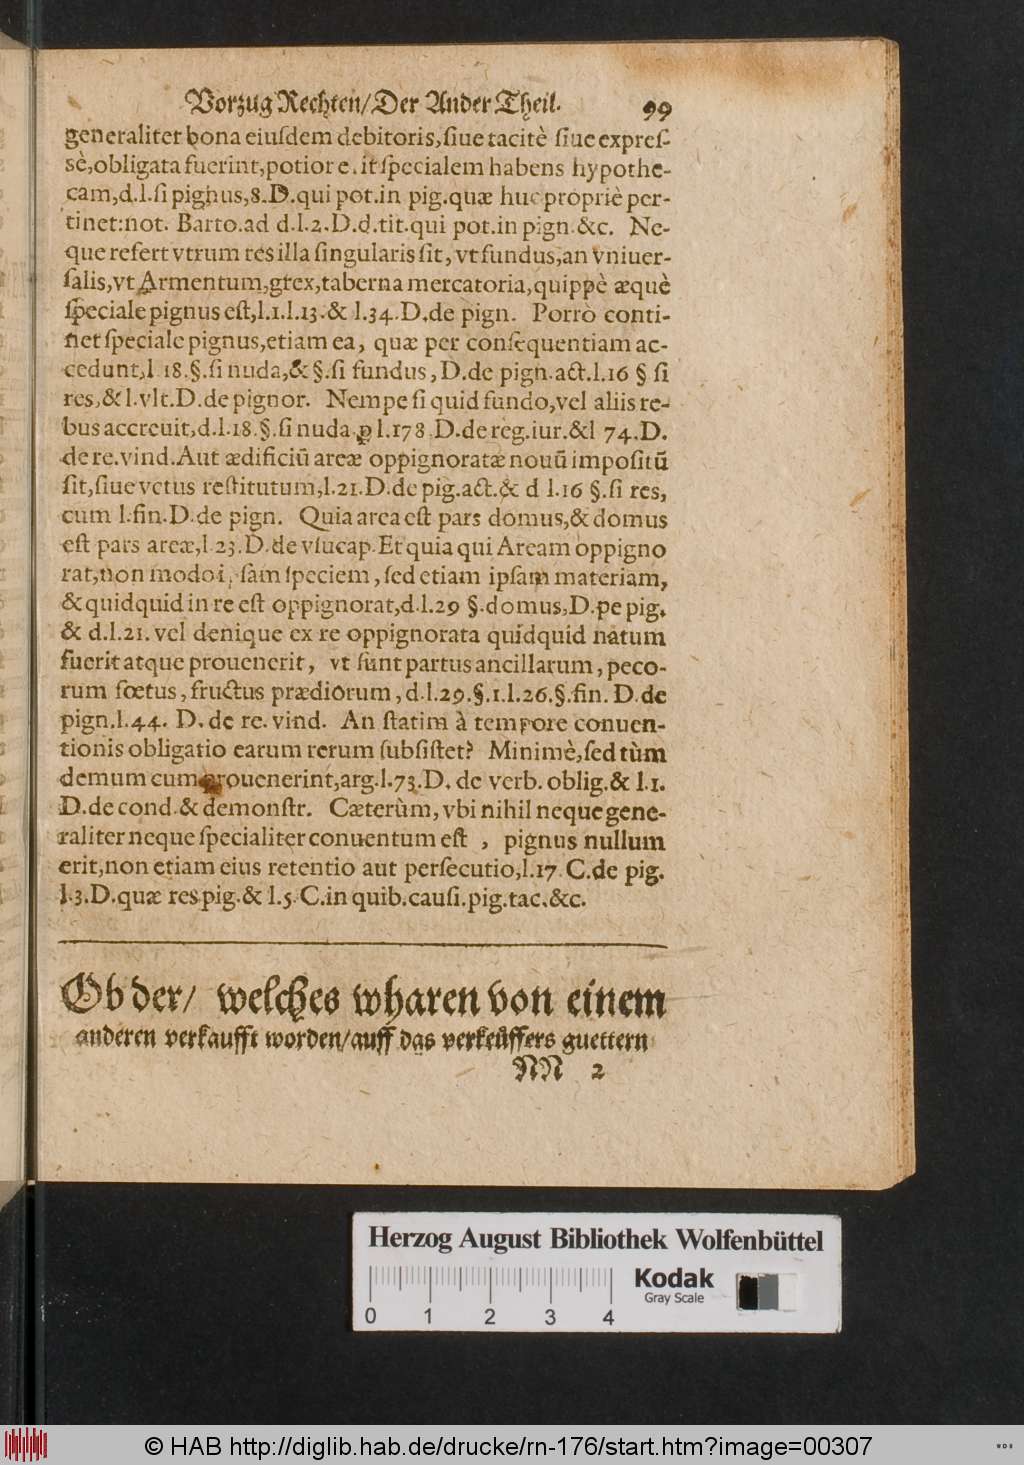 Vorzug Rechten/Der Ander Theil. 99
generaliter bona eiuſdem debitoris,ſiue tacitè ſiue expreſ-
sè,obligata fuerint,potior e.it ſpecialem habens hypothe-
cam,d.l.ſi pignus,8.D.qui pot.in pig.quæ huc propriè per-
tinet:not. Barto.ad d.l.2.D.d.tit.qui pot.in pign.&c. Ne-
que refert vtrum res illa ſingularis ſit, vt fundus,an vniuer-
ſalis,vt Armentum,grex,taberna mercatoria,quippè æquè
ſpeciale pignus eſt,l.1.l.13.& l.34.D.de pign. Porrò conti-
net ſpeciale pignus,etiam ea, quæ per conſequentiam ac-
cedunt,l 18.§.ſi nuda,&§.ſi fundus, D.de pign.act.l.16 § ſi
res,& l.vlt.D.de pignor. Nempe ſi quid fundo,vel aliis re-
bus accreuit,d.l.18.§.ſi nuda.ꝑ l.178.D.de reg.iur.&l 74.D.
de re.vind.Aut ædificiū areæ oppignoratæ nouū impoſitū
ſit,ſiue vetus reſtitutum,l.21.D.de pig.act.& d l.16 §.ſi res,
cum l.fin.D.de pign. Quia area eſt pars domus,& domus
eſt pars areæ,l 23.D.de vſucap.Et quia qui Aream oppigno
rat,non modo i.ſam ſpeciem, ſed etiam ipſam materiam,
& quidquid in re eſt oppignorat,d.l.29 §.domus,D.pe pig.
& d.l.21. vel denique ex re oppignorata quidquid natum
fuerit atque prouenerit, vt ſunt partus ancillarum, peco-
rum fœtus, fructus prædiorum, d.l.29.§.1.l.26.§.fin. D.de
pign.l.44. D. de re. vind. An ſtatim à tempore conuen-
tionis obligatio earum rerum ſubſiſtet? Minimè,ſed tùm
demum cum prouenerint,arg.l.73.D. de verb. oblig.& l.1.
D.de cond.& demonſtr. Cæterùm, vbi nihil neque gene-
raliter neque ſpecialiter conuentum eſt , pignus nullum
erit,non etiam eius retentio aut perſecutio,l.17.C.de pig.
l.3.D.quæ res pig.& l.5.C.in quib.cauſi.pig.tac.&c.
Ob der/ welches wharen von einem
anderen verkaufft worden/auff das verkeůffers guettern
NN 2
Herzog August Bibliothek Wolfenbüttel
Kodak
Gray Scale
0 1 2 3 4
© HAB http://diglib.hab.de/drucke/rn-176/start.htm?image=00307